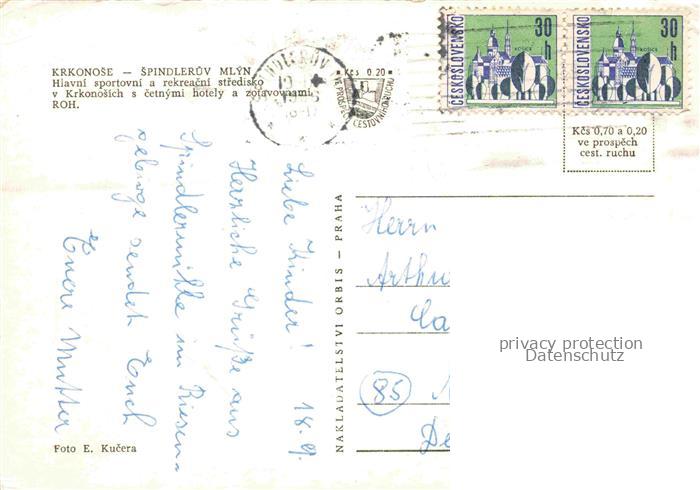 KRKONOŠE — ŠPINDLERŮV MLÝN
Hlavní sportovní a rekreační středisko
v Krkonoších s četnými hotely a zotavovnami
ROH.
Kčs 0.20
VE PROSPĚCH CESTOVNÍHO RUCHU
ČESKOSLOVENSKO
30 h
KOŠICE
ČESKOSLOVENSKO
30 h
KOŠICE
Kčs 0,70 a 0,20
ve prospěch
cest. ruchu
Liebe Kinder! 18.9.
Herzliche Grüße aus
Spindlermühle im Riesen-
gebirge sendet Euch
Euere Mutter
NAKLADATELSTVÍ ORBIS — PRAHA
Herrn
Arthu
Ca
(85)
De
privacy protection
Datenschutz
Foto E. Kučera